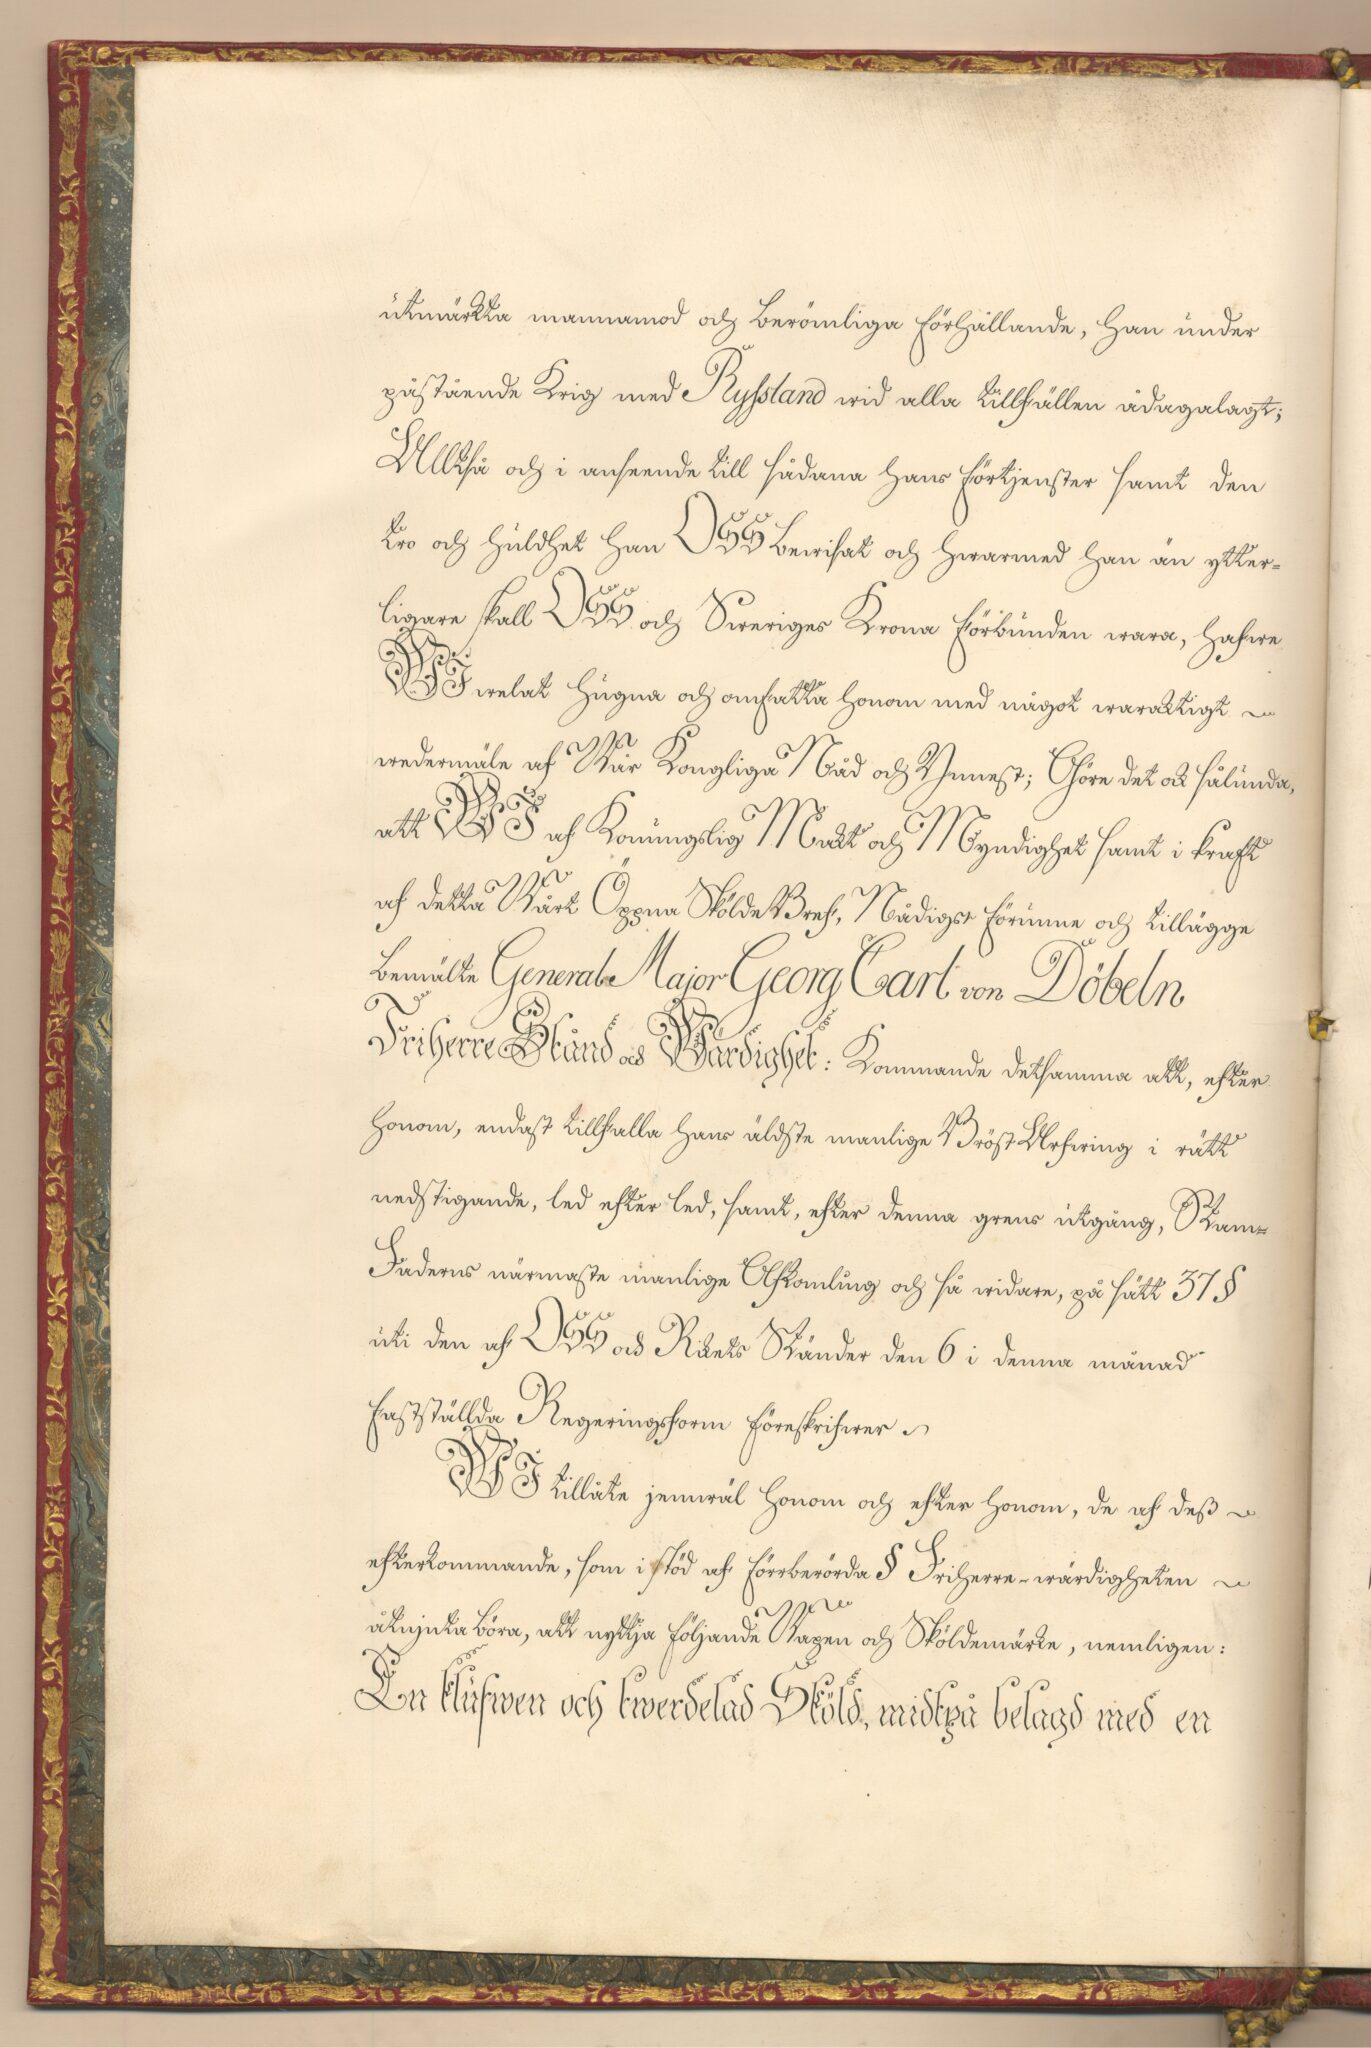 utmärkta mannamod och berömliga förhållande, han under
påstående Krig med Ryssland wid alla tillfällen ådagalagt;
Alltså och i anseende till sådana hans förtjenster samt den
tro och huldhet han OSS bewisat och hwarmed han än ytter-
ligare skall OSS och Sweriges Krona förbunden wara, hafwe
WI welat hugna och omfatta honom med något waraktigt
wedermäle af Vår Kongliga Nåd och Ynnest; Göre det ock sålunda,
att WI af Konungslig Makt och Myndighet samt i kraft
af detta Vårt Öppna Sköldebref, Nådigst förunne och tillägge
bemälte General-Major Georg Carl von Döbeln
Friherre Stånd och Wärdighet: Kommande detsamma att, efter
honom, endast tillfalla hans äldste manlige Bröst Arfwing i rätt
nedstigande, led efter led, samt, efter denna grens utgång, Stam-
Faderns närmaste manlige Afkomling och så widare, på sätt 37 §
uti den af OSS och Rikets Ständer den 6 i denna månad
fastställda Regeringsform föreskrifwer
WI tillåte jemwäl honom och efter honom, de af dess
efterkommande, som i stöd af förrberörda § Friherre-wärdigheten
åtnjuta böra, att nyttja följande Vapen och Sköldemärke, nemligen:
En klufwen och twerdelad Sköld, midtpå belagd med en